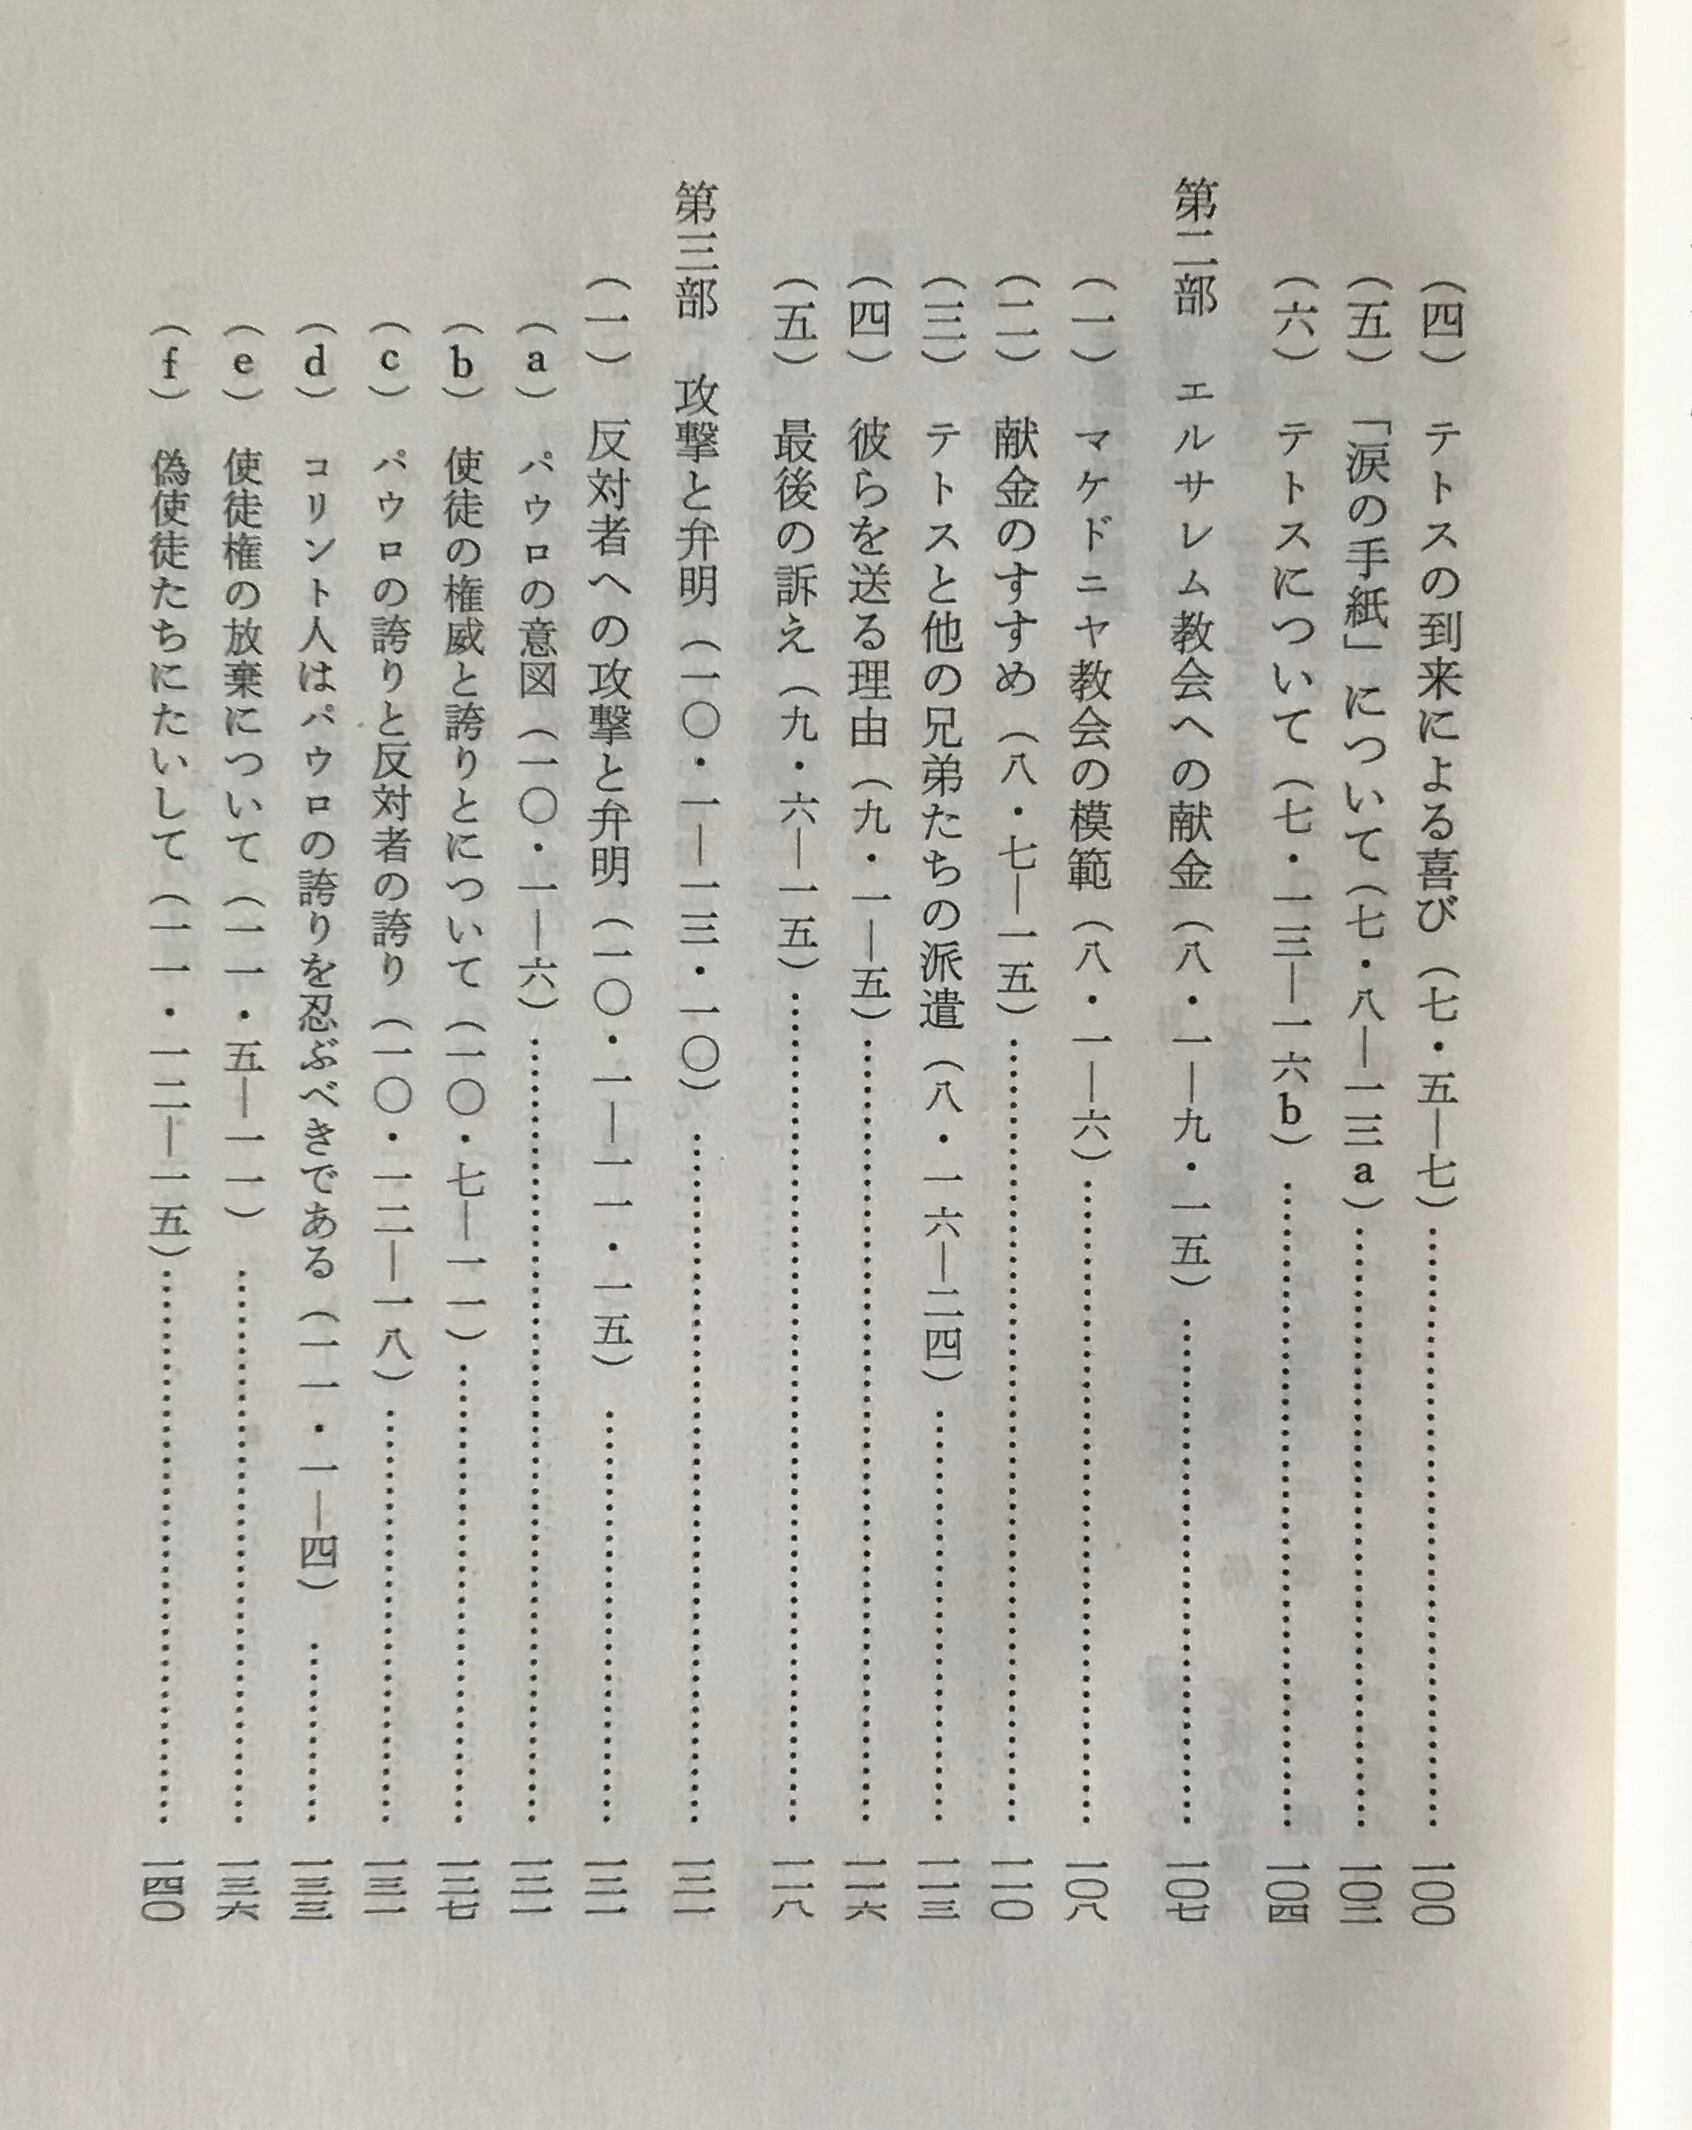 （四）　テトスの到来による喜び（七・五―七）……………………一〇〇
（五）　「涙の手紙」について（七・八―一三a）……………………一〇二
（六）　テトスについて（七・一三―一六b）……………………一〇四
第二部　エルサレム教会への献金（八・一―九・一五）……………………一〇七
（一）　マケドニヤ教会の模範（八・一―六）……………………一〇八
（二）　献金のすすめ（八・七―一五）……………………一一〇
（三）　テトスと他の兄弟たちの派遣（八・一六―二四）……………………一一三
（四）　彼らを送る理由（九・一―五）……………………一一六
（五）　最後の訴え（九・六―一五）……………………一一八
第三部　攻撃と弁明（一〇・一―一三・一〇）……………………一二一
（一）　反対者への攻撃と弁明（一〇・一―一一・一五）……………………一二一
（a）　パウロの意図（一〇・一―六）……………………一二一
（b）　使徒の権威と誇りとについて（一〇・七―一一）……………………一二七
（c）　パウロの誇りと反対者の誇り（一〇・一二―一八）……………………一三一
（d）　コリント人はパウロの誇りを忍ぶべきである（一一・一―四）……………………一三三
（e）　使徒権の放棄について（一一・五―一一）……………………一三六
（f）　偽使徒たちにたいして（一一・一二―一五）……………………一四〇